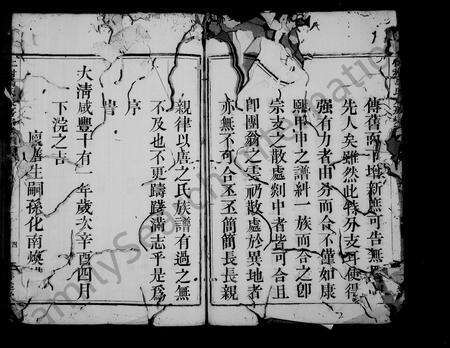 傳舊而再增新應可告無
先人矣雖然此特分支耳使得
強有力者由分而合不僅如康
熙甲申之譜糾一族而合之卽
宗支之散處剡中者皆可合且
卽團翁之雲礽散處於異地者
亦無不可合丕丕簡簡長長親
親律以唐之氏族譜有過之無
不及也不更躊躇滿志乎是爲
序
大清咸豐十有一年歲次辛酉四月
下浣之吉
廩膳生嗣孫化南煥
FamilySearch International